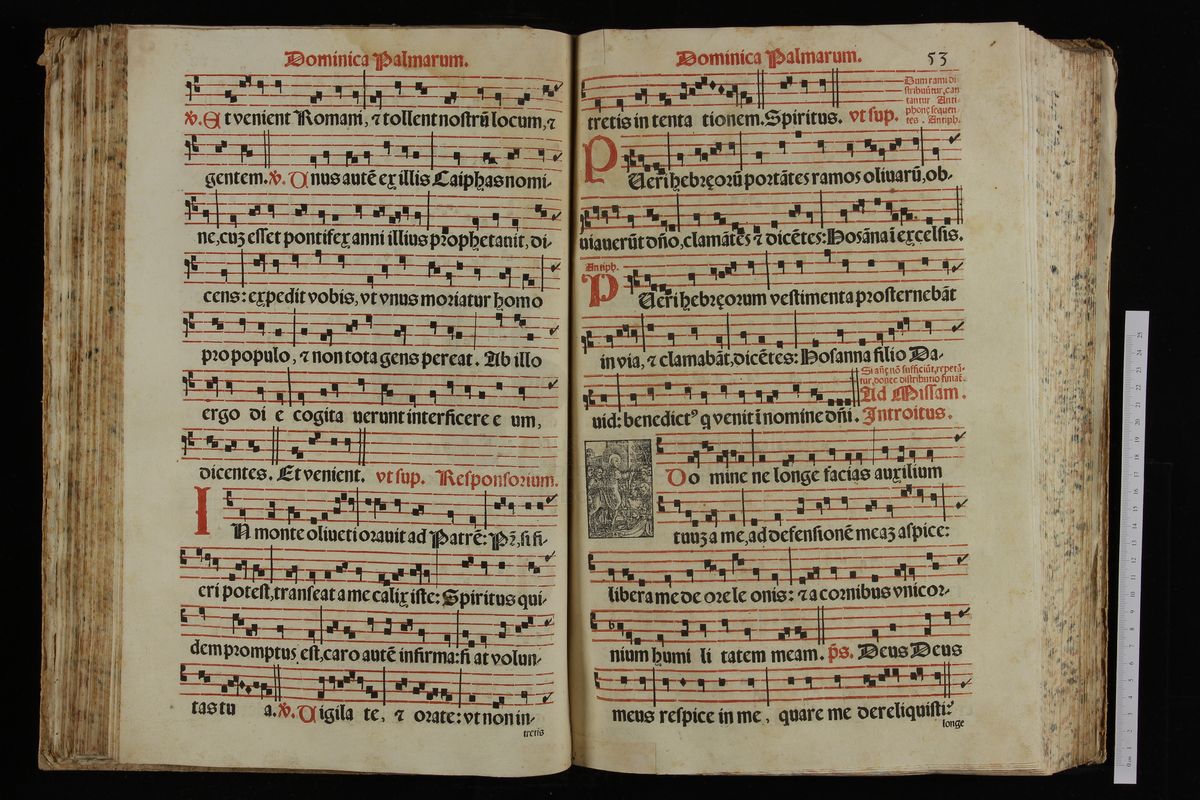 Dominica Palmarum.
℣. Et venient Romani, ⁊ tollent nostrū locum, ⁊
gentem. ℣. Unus autē ex illis Caiphas nomi-
ne, cuȝ esset pontifex anni illius prophetauit, di-
cens: expedit vobis, vt vnus moriatur homo
pro populo, ⁊ non tota gens pereat. Ab illo
ergo di e cogita uerunt interficere e um,
dicentes. Et venient. vt sup. Responsorium.
IN monte oliueti orauit ad Patrē: Pr̄, si fi-
eri potest, transeat a me calix iste: Spiritus qui-
dem promptus est, caro autē infirma: fi at volun-
tas tu a. ℣. Uigila te, ⁊ orate: vt non in-
tretis
Dominica Palmarum. 53
tretis in tenta tionem. Spiritus. vt sup.
Dum rami di
stribuūtur, can
tantur Anti
phonę sequen
tes. Antiph.
PUeri hebręorū portātes ramos oliuarū, ob-
uiauerūt dño, clamātes ⁊ dicētes: Hosāna ī excelsis.
Antiph.
PUeri hebręorum vestimenta prosternebāt
in via, ⁊ clamabāt, dicētes: Hosanna filio Da-
Si añę nō sufficiūt, repetā-
tur, donec distributio finiat.
uid: benedictꝰ q venit ī nomine dñi. Ad Missam. Introitus.
Do mine ne longe facias auxilium
tuuȝ a me, ad defensionē meaȝ aspice:
libera me de ore le onis: ⁊ a cornibus vnicor-
nium humi li tatem meam. p̄s. Deus Deus
meus respice in me, quare me dereliquisti?
longe